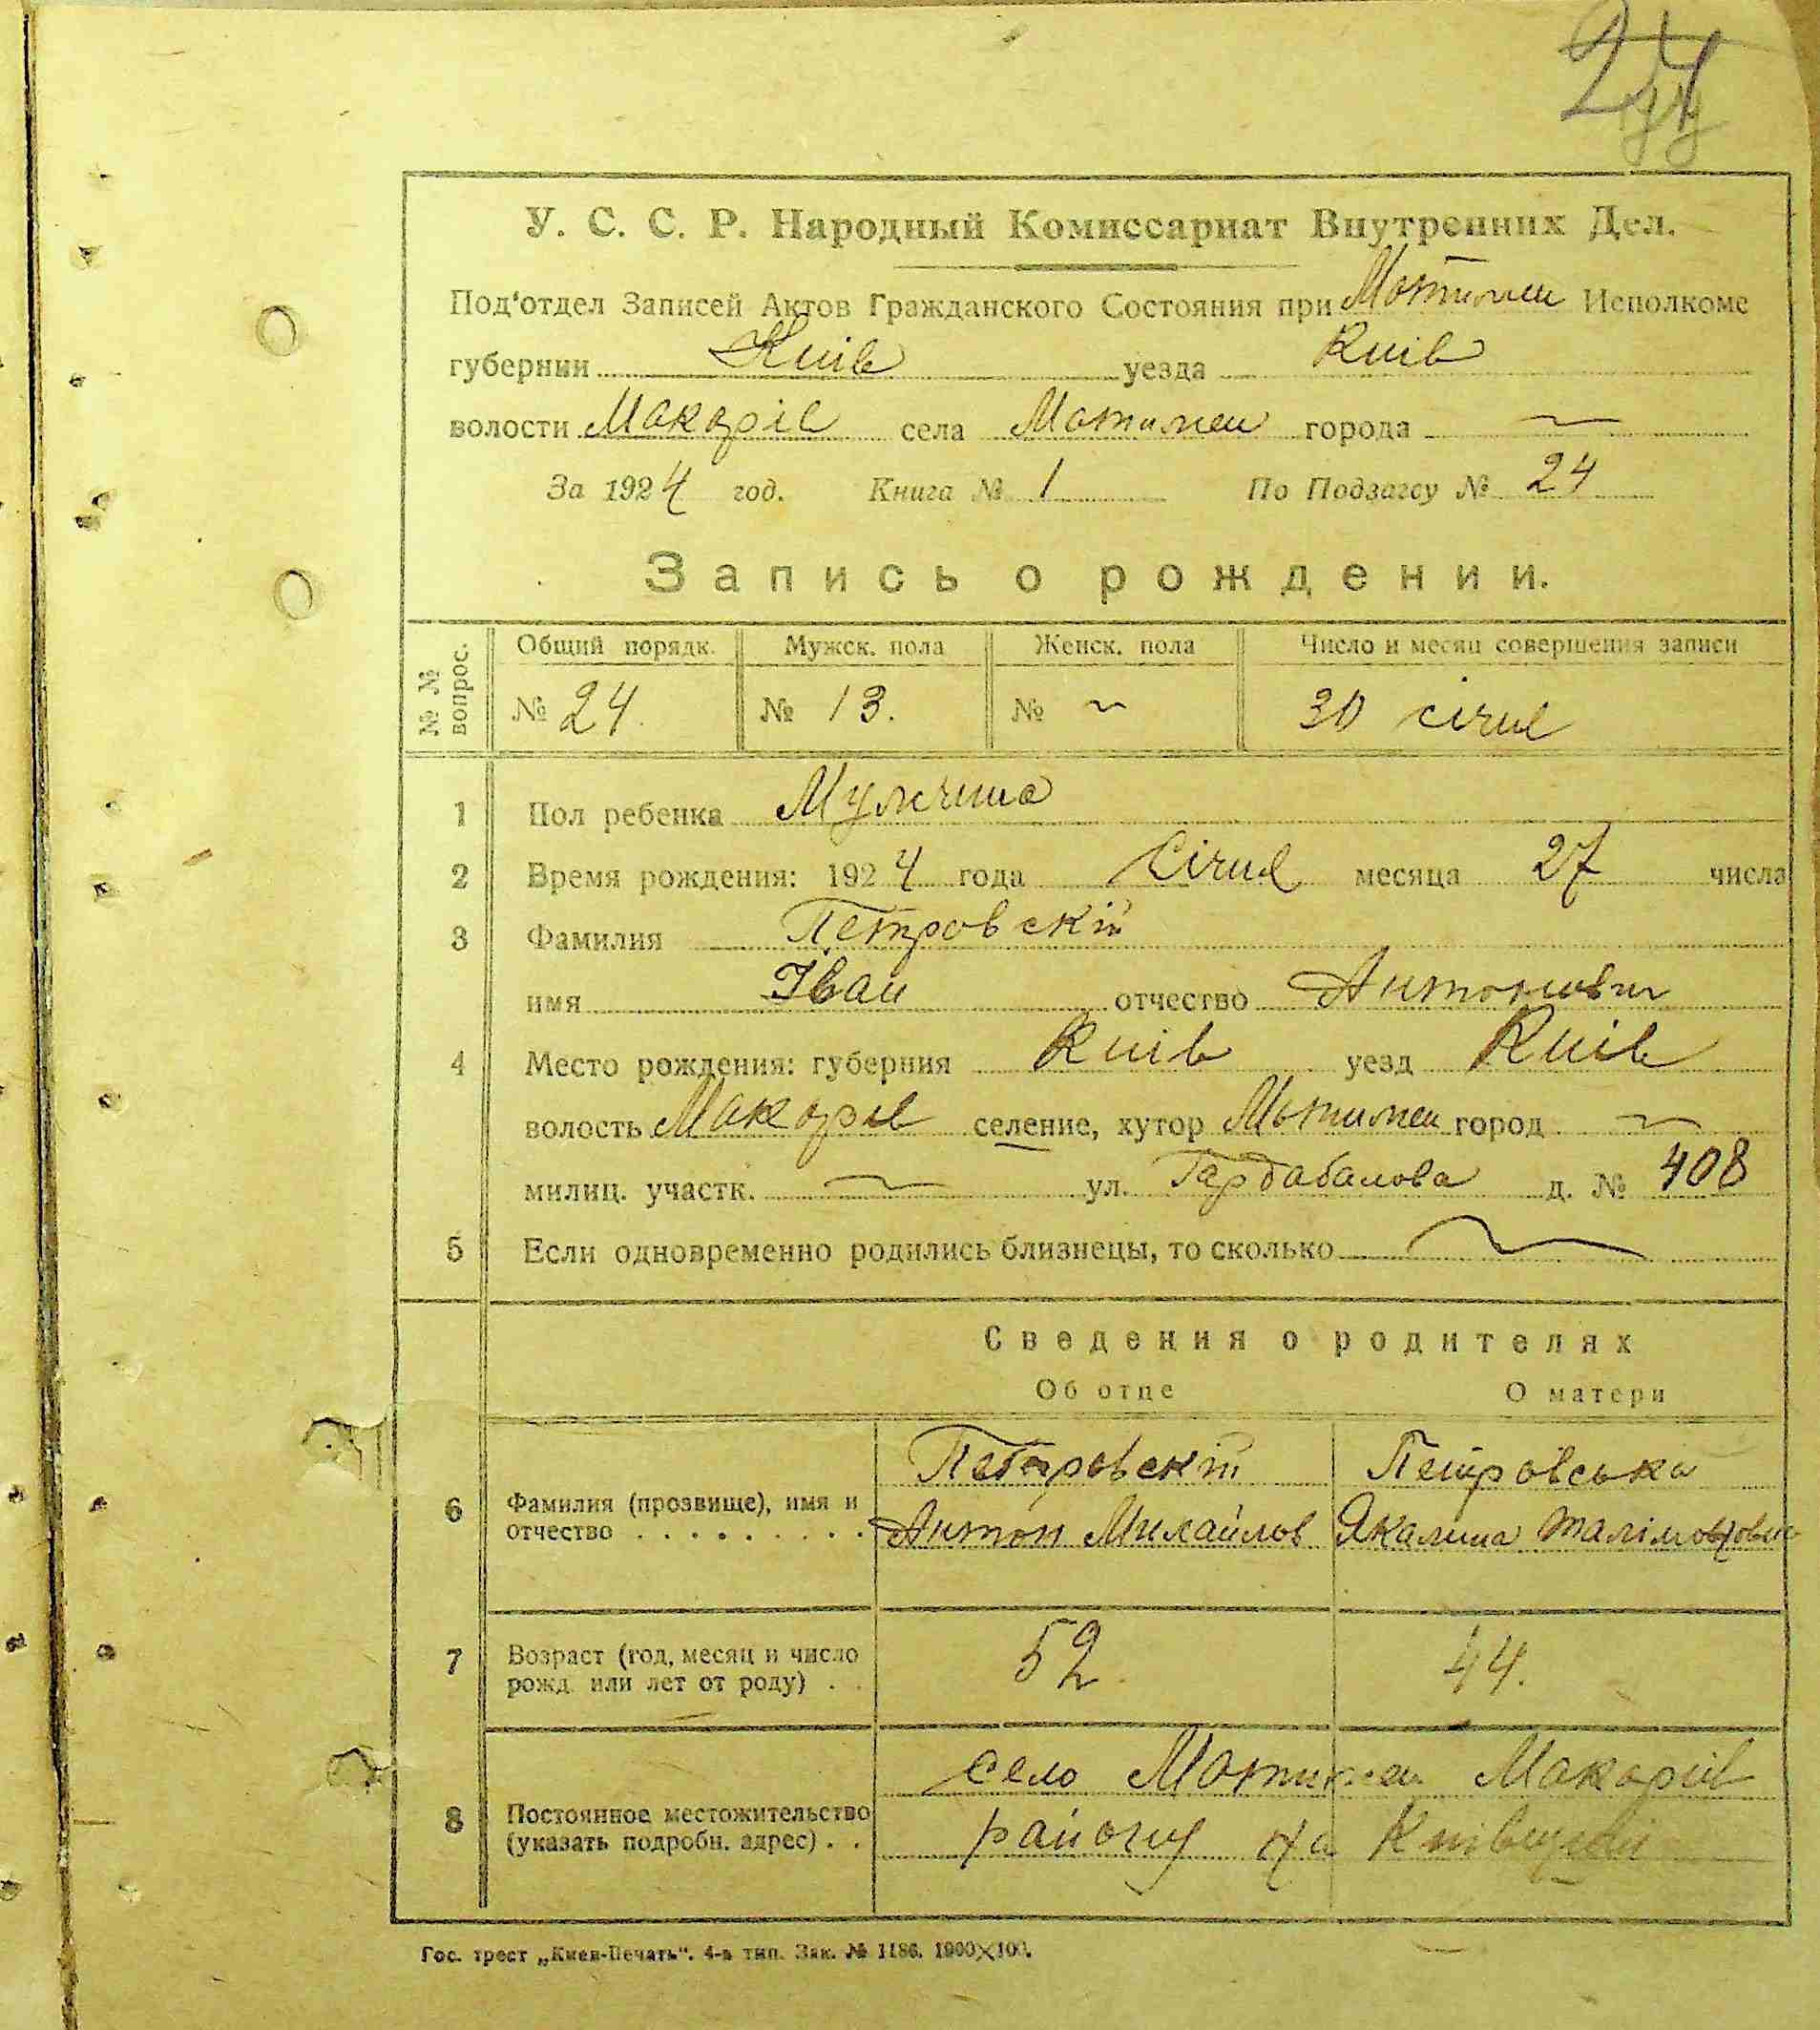 24
У. С. С. Р. Народный Комиссариат Внутренних Дел.
Под'отдел Записей Актов Гражданского Состояния при Мотижен Исполкоме
губернии Київ уезда Київ
волости Макарів села Мотижен города ~
За 1924 год. Книга № 1 По Подзагсу № 24
Запись о рождении.
№ № вопрос. Общий порядк. Мужск. пола Женск. пола Число и месяц совершения записи
№ 24. № 13. № ~ 30 січня
1 Пол ребенка Мужчина
2 Время рождения: 1924 года Січня месяца 27 числа
3 Фамилия Петровскій
имя Іван отчество Антонович
4 Место рождения: губерния Київ уезд Київ
волость Макарів селение, хутор Мотижен город ~
милиц. участк. ~ ул. д. № 408
5 Если одновременно родились близнецы, то сколько ~
Сведения о родителях
Об отце О матери
Петровскій Петровська
6 Фамилия (прозвище), имя и
отчество . . . . . . . . . Антон Михайлов
7 Возраст (год, месяц и число
рожд. или лет от роду) . . 52. 44.
село Мотижен Макарів
8 Постоянное местожительство
(указать подробн. адрес) . . району на Київщині
Гос. трест „Киев-Печать". 4-я тип. Зак. № 1186. 1900×100.